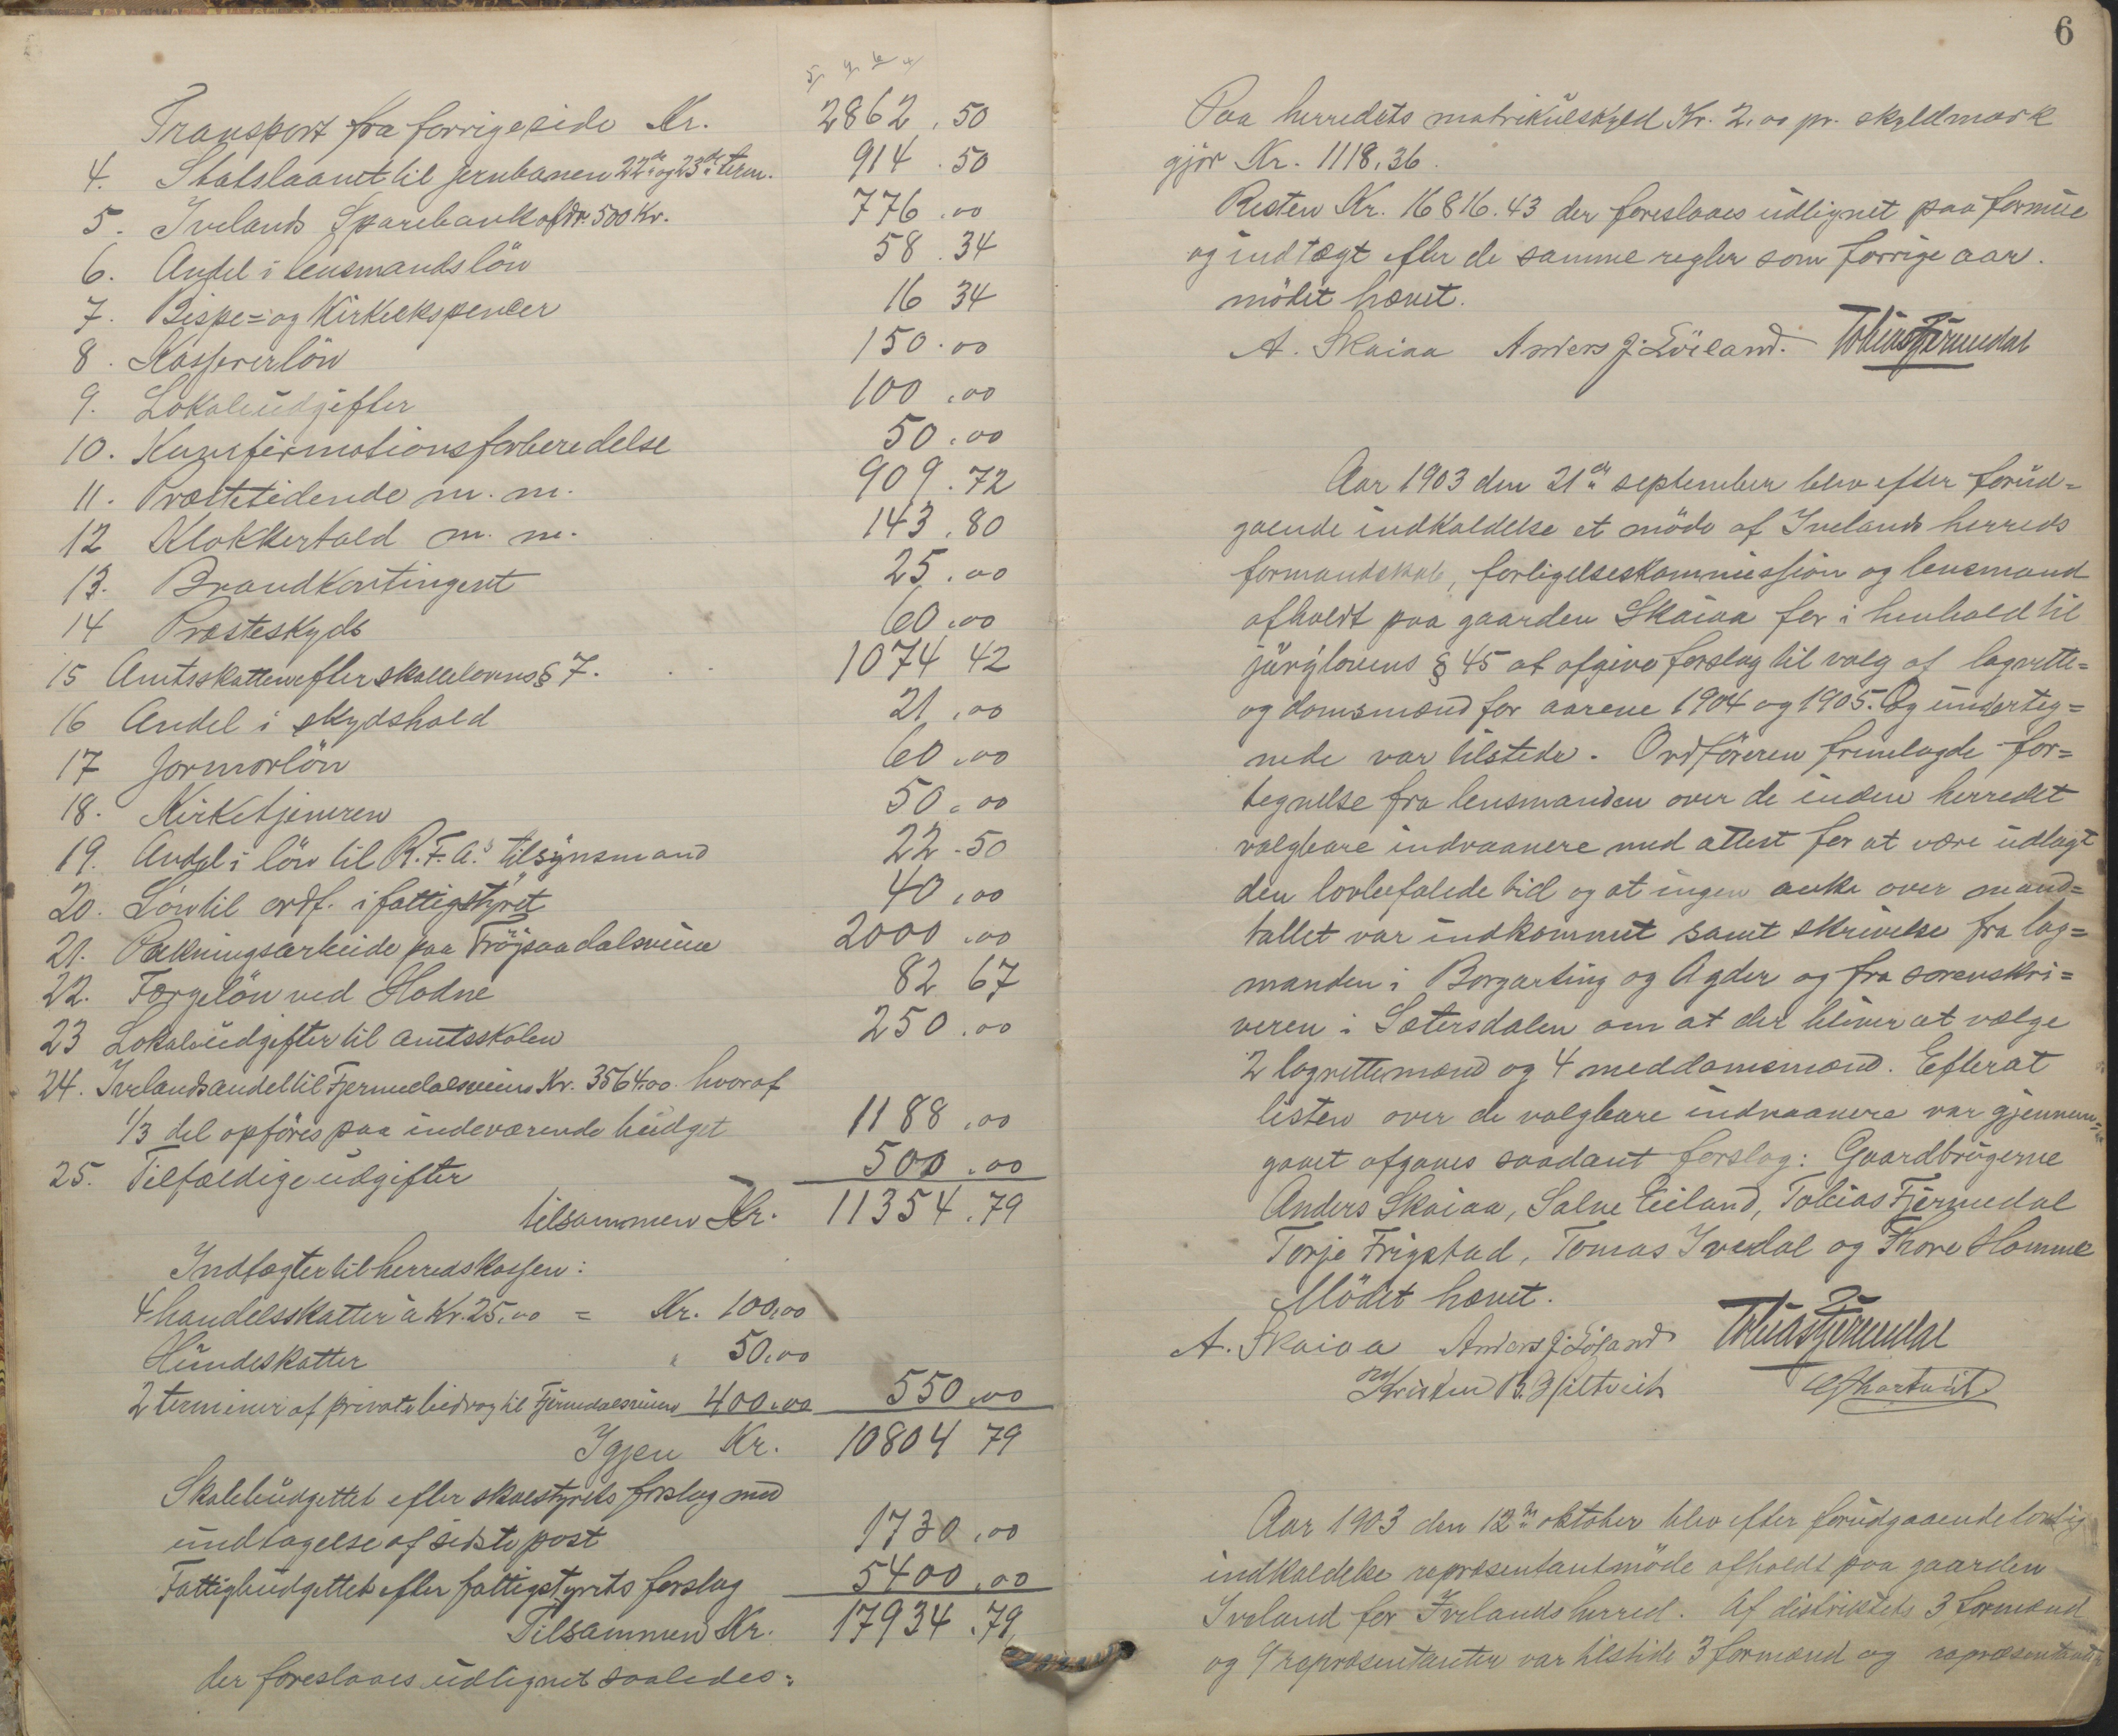 Transport fra forrige side Kr. 2862.50
4. Statslaanet til jernbanen 22de og 23de term. 914.50
5. Ivelands Sparebank afdr. 500 Kr. 776.00
6. Andel i lensmandslön 58.34
7. Bispe= og Kirkeekspencer 16 34
8. Kasserlön 150.00
9. Lokaleudgifter 100.00
10. Kunfirmationsforberedelse 50.00
11. Præstetidende m. m. 909.72
12 Klokkertold m. m. 143.80
13. Brandkontingent 25.00
14 Præsteskyds 60.00
15 Amtsskatten efter skattelovens § 7. 1074 42
16 Andel i skydshold 21.00
17 Jormorlön 60.00
18. Kirketjeneren 50.00
19. Andel i lön til R.F.A.s tilsynsmand 22.50
20. Lön til ordf. i fattigstyret 40.00
21. Pakningsarbeide paa Fröjsaadalsveien 2000.00
22. Færgelön ved Hodne 82 67
23 Lokaleudgifter til amtsskolen 250.00
24. Ivelands andel til Fjermedalsveien Kr. 3564.00 hvoraf
1/3 del opføres paa indeværende budget 1188.00
25. Tilfældige udgifter 500.00
tilsammen Kr. 11354.79
Indtægter til herredskassen:
4 handelsskatter à Kr. 25.00 = Kr. 100.00
Hundeskatter " 50.00
2 terminer af private bidrag til Fjermedalsveien 400.00 550.00
Igjen Kr. 10804 79
Skolebudgettet efter skolestyrets forslag med
undtagelse af sidste post 1730.00
Fattigbudgettet efter fattigstyrets forslag 5400.00
Tilsammen Kr. 17934.79
der foreslaaes udlignet saaledes:
6
Paa herredets matrikulskyld Kr. 2.00 pr. skyldmark
gjör Kr. 1118.36.
Resten Kr. 16816.43 der foreslaaes udlignet paa formue
og indtægt efter de samme regler som forrige aar.
mödet hævet.
A. Skaiaa Anders J. Löiland. Tobias Fjermedal
Aar 1903 den 21de september blev efter forud=
gaende indkaldelse et möde af Ivelands herreds
formandskab, forligelseskommission og lensmand
afholdt paa gaarden Skaiaa for i henhold til
jurylovens § 45 at afgive forslag til valg af lagrette=
og domsmænd for aarene 1904 og 1905. Og underteg=
nede var tilstede. Ordföreren fremlagde for=
tegnelse fra lensmanden over de inden herredet
valgbare indvaanere med attest for at være udlagt
den lovbefalede tid og at ingen anke over mand=
tallet var indkommet samt skrivelse fra lag=
manden i Borgarting og Agder og fra sorenskri=
veren i Sætersdalen om at der bliver at vælge
2 lagrettemænd og 4 meddomsmænd. Efterat
listen over de valgbare indvaanere var gjennem=
gaaet afgaves saadant forslag: Gaardbrugerne
Anders Skaiaa, Salve Eiland, Tobias Fjermedal
Torje Frigstad, Tomas Ivedal og Thore Homme
Mödet hævet.
A. Skaiaa Anders J. Löiland Tobias Fjermedal
Kristen B.
Aar 1903 den 12te oktober blev efter forudgaaende lovlig
indkaldelse repræsentantmöde afholdt paa gaarden
Iveland for Ivelands herred. Af distriktets 3 formænd
og 9 repræsentanter var tilstede 3 formænd og repræsentant